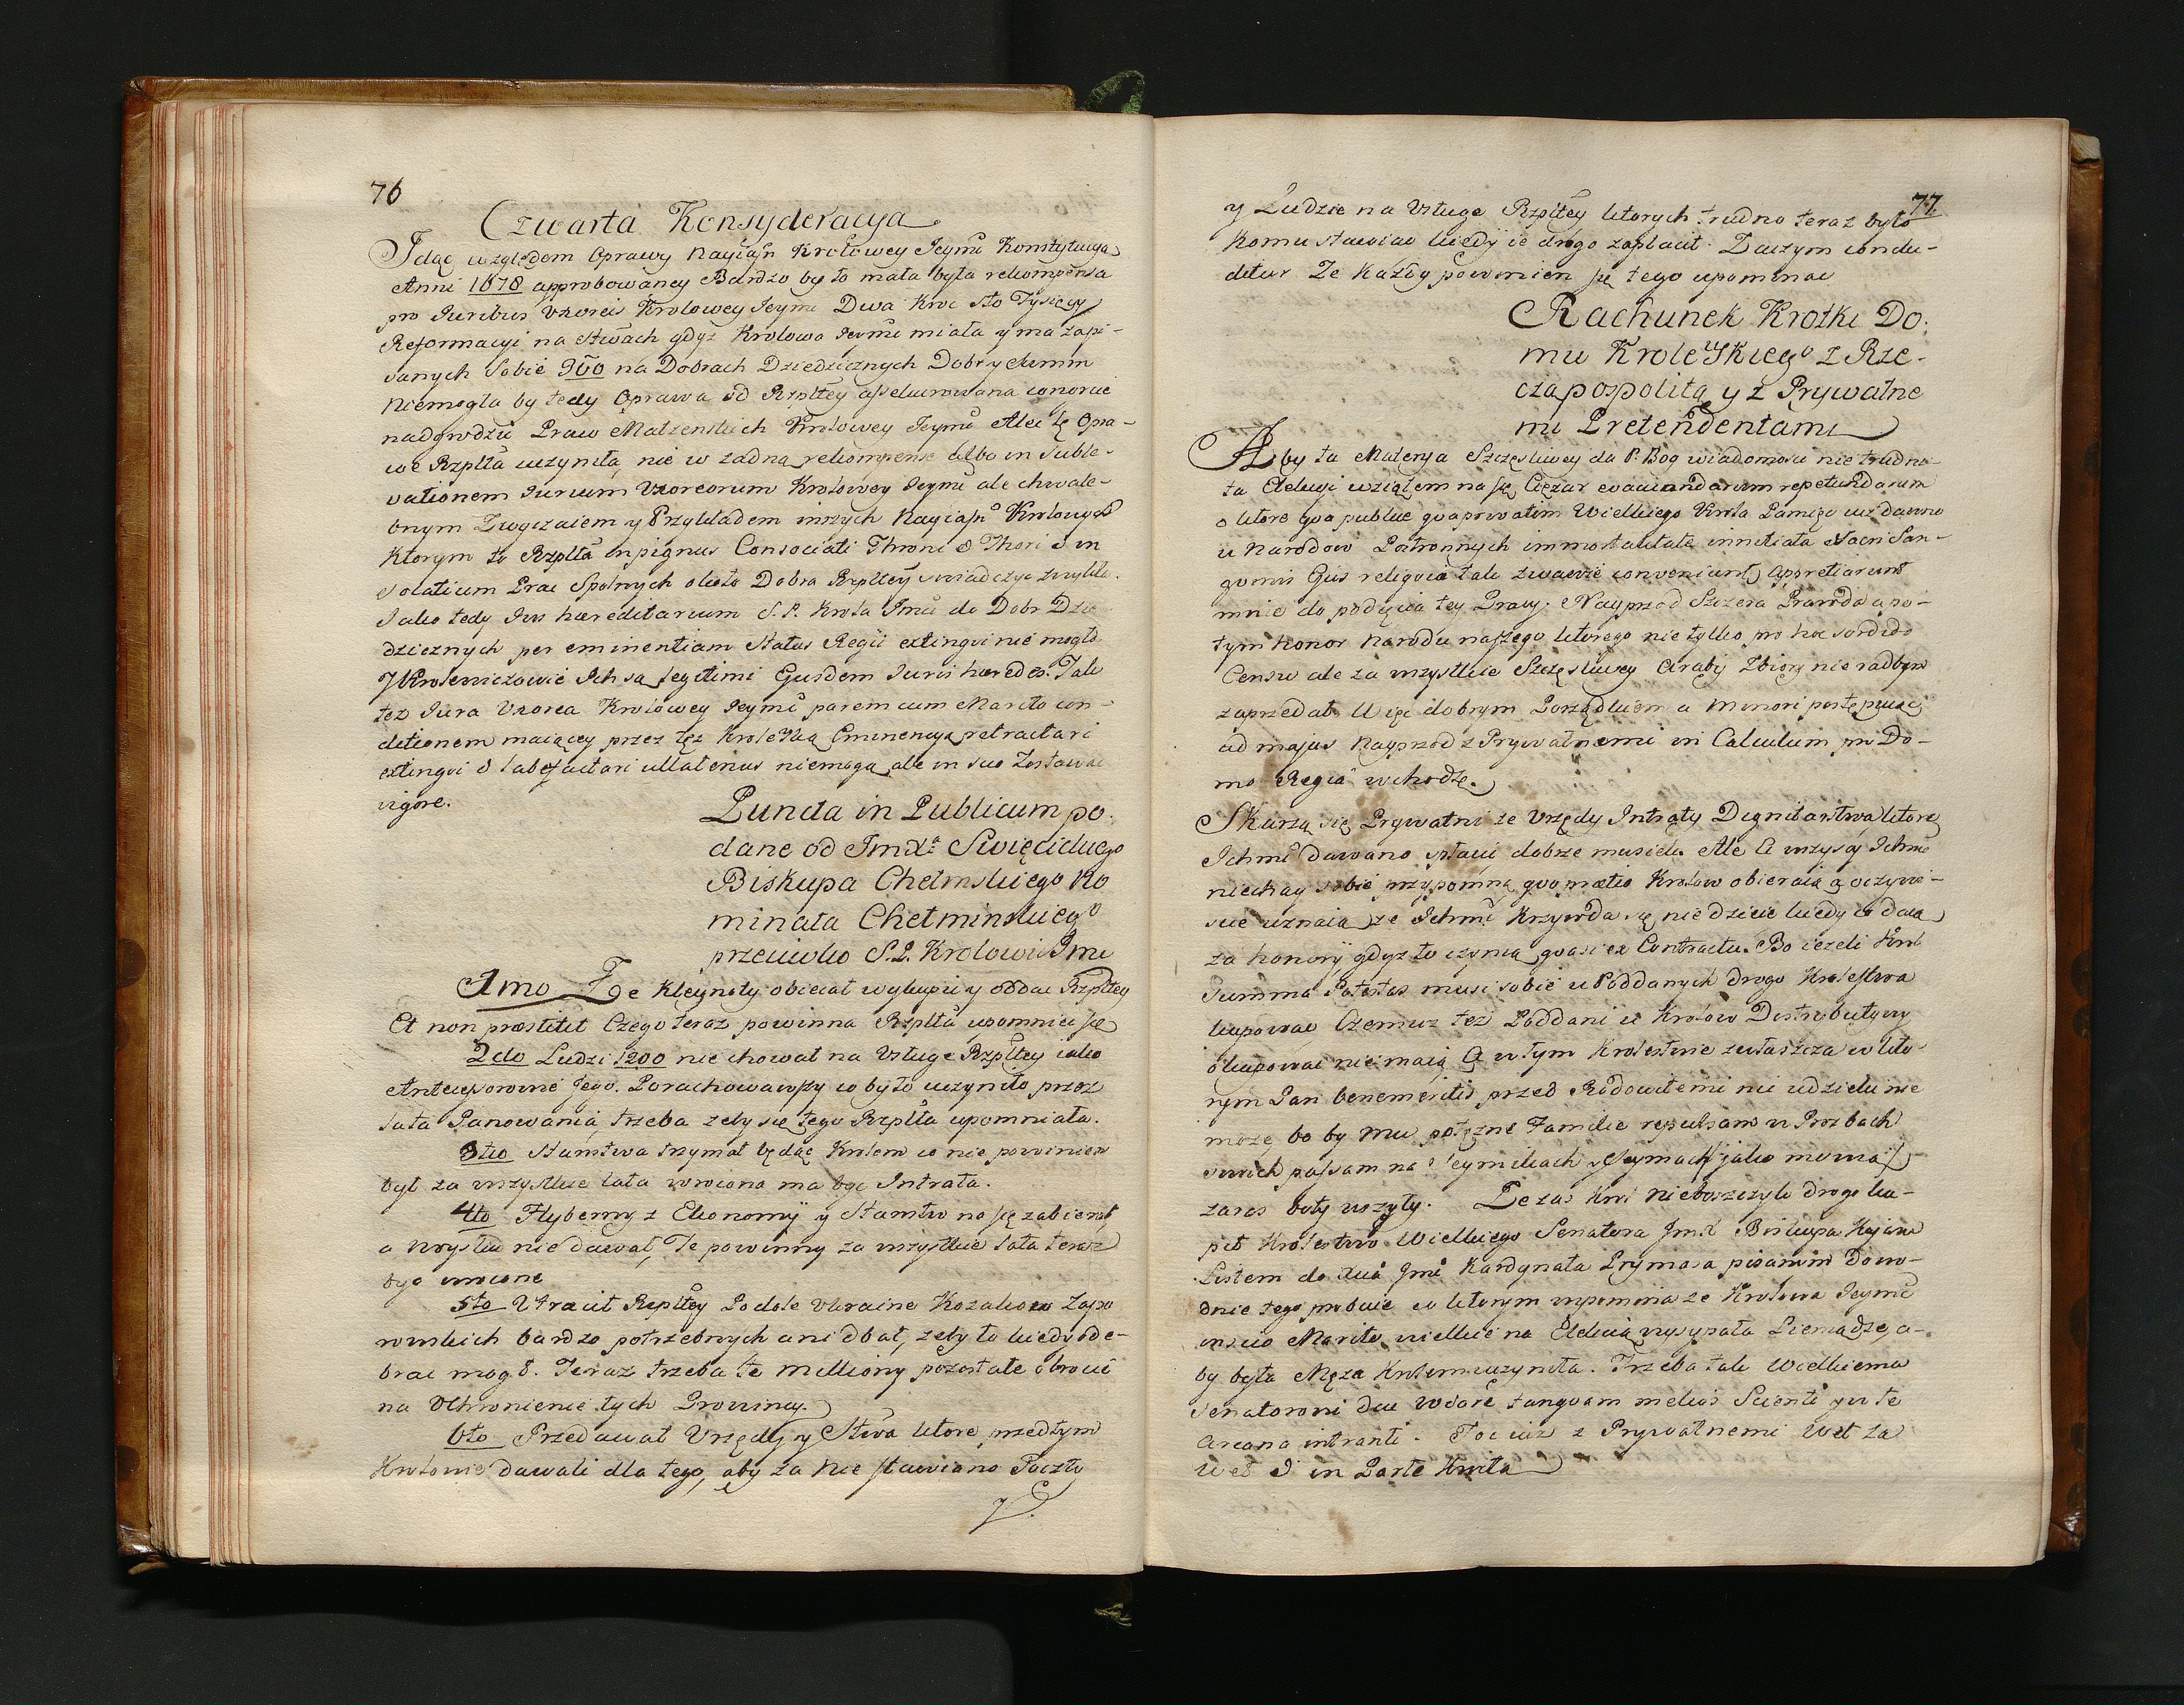 76
Czwarta Konsyderacya
Idąc względem Oprawy Nayiasn Krolowey Jeymci Konstytucyą
Anni 1678 approbowaney Bardzo by to mała była rekompensa
pro Juribus Uxoreis Krolowey Jeymci Dwa Kroc sto Tysięcy
Reformacyi na Stwach gdyż Krolowa Jeymci miała y ma zapi-
sanych sobie 900 na Dobrach Dziedzicznych Dobry
Niemogła by tedy Oprawa od Rzpltey assekurowana
nadgrodzic Praw Malzenskich Krolowey Jeymci Ale tę Opra-
wę Rzplta uczyniła nie w żadną rekompensę albo in suble-
vationem Jurium Uxoreorum Krolowey Jeymci ale chwale-
bnym Zwyczaiem y Przykładem inszych Nayiasn Krolowych
Ktorym to Rzplta in pignus Consociati Throni & Thori & in
solatium Prac Spolnych około Dobra Rzpltey swiadczyc zwykła.
Jako tedy Jus haereditarium S. P. Krola Jmci do Dobr Dzie
dzicznych per eminentiam Status Regii extingvi nie mogło
Y Krolewiczowie Ich są legitimi Ejusdem Juris haeredes. Tak
też Jura Uxorea Krolowey Jeymci parem cum Marito con-
ditionem maiącey przez tęż Krolewską Eminencyą retractari
extingvi & labefactari ullatenus niemogą ale in suo Zostawac
vigore.
Puncta in Publicum po-
dane od Jmci Xa Swięcickiego
Biskupa Chełmskiego No
minata Chełminskiego
przeciwko S. P. Krolowi Jmci
1mo Ze Kleynoty obiecał wykupic y oddac Rzpltey
Et non praestitit Czego teraz powinna Rzplta upomniec się
2do Ludzi 1200 nie chował na Usługę Rzpltey iako
Antecessorowie Jego. Porachowawszy co by to uczyniło przez
lata Panowania, trzeba zeby się tego Rzplta upomniała.
3tio Starostwa trzymał będąc Krolem co nie powinien
był za wszystkie lata wrocona ma byc Intrata.
4to Hyberny z Ekonomij y Starostw na się zabierał
a Woysku nie dawał, Te powinny za wszystkie lata teraz
byc wrocone
5to Utracił Rzpltey Podole Ukrainę Kozakow Zapo
rowskich bardzo potrzebnych ani dbał, zeby to kiedy ode-
brac mogł. Teraz trzeba te Milliony pozostałe obrocic
na Uchronienie tych Prowincy.
6to Przedawał Urzędy y Stwa ktore przedtym
Krolowie dawali dla tego, aby za nie stawiano Poczty
y
77
y Ludzie na Usługę Rzpltey ktorych trudno teraz było
Komu stawiac kiedy ie drogo zapłacił. Zaczym conclu-
ditur Ze Kazdy powinien się tego upominac
Rachunek Krotki Do-
mu Krolewskiego z Rze-
cząpospolitą y z Prywatne
mi Pretendentami
Aby ta Materya Szczęsliwey da P. Bog wiadomosci nie trudni-
ła Elekcyi wziąłem na się Cięzar evacuandarum repetundarum
o ktore qva publice qva privatim Wielkiego Krola Pamięc iuz dawno
u Narodow Postronnych immortalitate innitiata Sacri San-
gvinis Ejus religviae tak zwawie conveniunt, Appretiarunt
mnie do podięcia tey Pracy. Nayprzod Szczera Prawda a po-
tym honor Narodu naszego ktorego nie tylko pro hoc sordido
Censu ale za wszystkie Szczęsliwey Arabij Zbiory nie radbym
zaprzedał. Więc dobrym Porządkiem a minori postępuiąc
ad majus Nayprzod z Prywatnemi in Calculum pro Do-
mo Regia wchodzę.
Skarzą się Prywatni ze Urzędy Intraty Dignitarstwa ktore
Ichmciom dawano płacic dobrze musieli. Ale Ci wszyscy Ichmc
niechay sobie przypomną qvo praetio Krolow obieraią a oczywi-
scie uznaią ze Ichmci Krzywda się nie dzieie kiedy co daią
za honory gdyz to czynią qvasi ex Contractu. Bo iezeli Krol
Summa Potestas musi sobie u Poddanych drogo Krolestwa
kupowac Czemuz też Poddani u Krolow Distributywy
okupowac nie maią A w tym Krolestwie zwłaszcza w kto
rym Pan benemeritis przed Rodowitemi nic udzielic nie
może, bo by mu potęzne Familie repulsam w Prozbach
swoich passam na Seymikach y Seymach jako mowią
zaras boty uszyły. Ze zas Krol Nieboszczyk drogo ku-
pił Krolestwo Wielkiego Senatora Jmci X Biskupa Kujaw
Listem do Xcia Jmci Kardynała Prymasa pisanym Dowo-
dnie tego probuie w ktorym wspomina ze Krolowa Jeymci
inscio Marito wielkie na Elekcią wysypała Pieniądze, a-
by była Męza Krolem uczyniła. Trzeba tak Wielkiemu
Senatorowi dac wiarę tanqvam melius Scienti y w te
Arcana intranti. Toć iuz z Prywatnemi Wet za
wet & in Parte Kwita